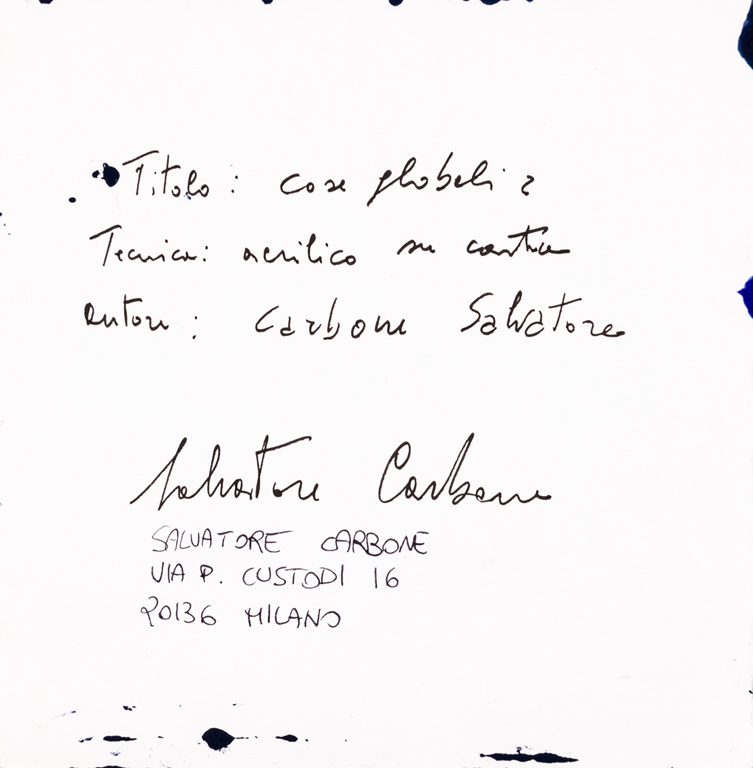 Titolo: cose globali 2
Tecnica: acrilico su carta
autore: Carbone Salvatore
Salvatore Carbone
SALVATORE CARBONE
VIA P. CUSTODI 16
20136 MILANO